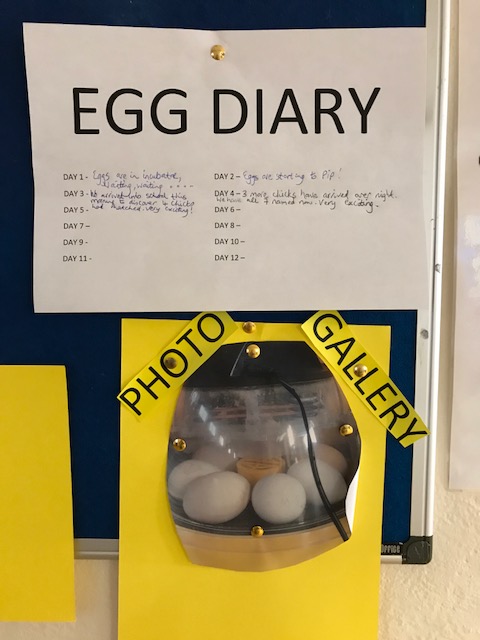 EGG DIARY
DAY 1 - Eggs are in incubator,
waiting, waiting ....
DAY 2 – Eggs are starting to Pip!
DAY 3 - We arrived into school this
morning to discover 4 chicks
DAY 4 – 3 more chicks have arrived over night.
we have all 7 named now. Very exciting.
DAY 5 - had hatched. very exciting!
DAY 6 –
DAY 7 –
DAY 8 –
DAY 9 -
DAY 10 –
DAY 11 -
DAY 12 –
PHOTO
GALLERY
Office